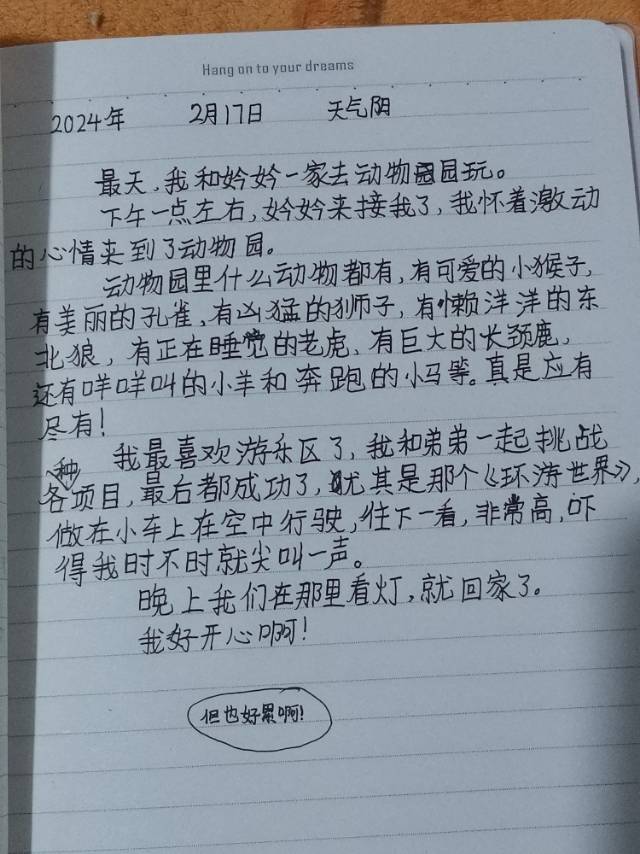 Hang on to your dreams
2024年 2月17日 天气阴
最天,我和妗妗一家去动物园玩。
下午一点左右,妗妗来接我了,我怀着激动
的心情来到了动物园。
动物园里什么动物都有,有可爱的小猴子,
有美丽的孔雀、有凶猛的狮子,有懒洋洋的东
北狼,有正在睡觉的老虎、有巨大的长颈鹿,
还有咩咩叫的小羊和奔跑的小马等。真是应有
尽有!
我最喜欢游乐区了,我和弟弟一起挑战
各种项目,最右都成功了,尤其是那个《环游世界》,
做在小车上在空中行驶,往下一看,非常高,吓
得我时不时就尖叫一声。
晚上我们在那里看灯,就回家了。
我好开心啊!
但也好累啊!